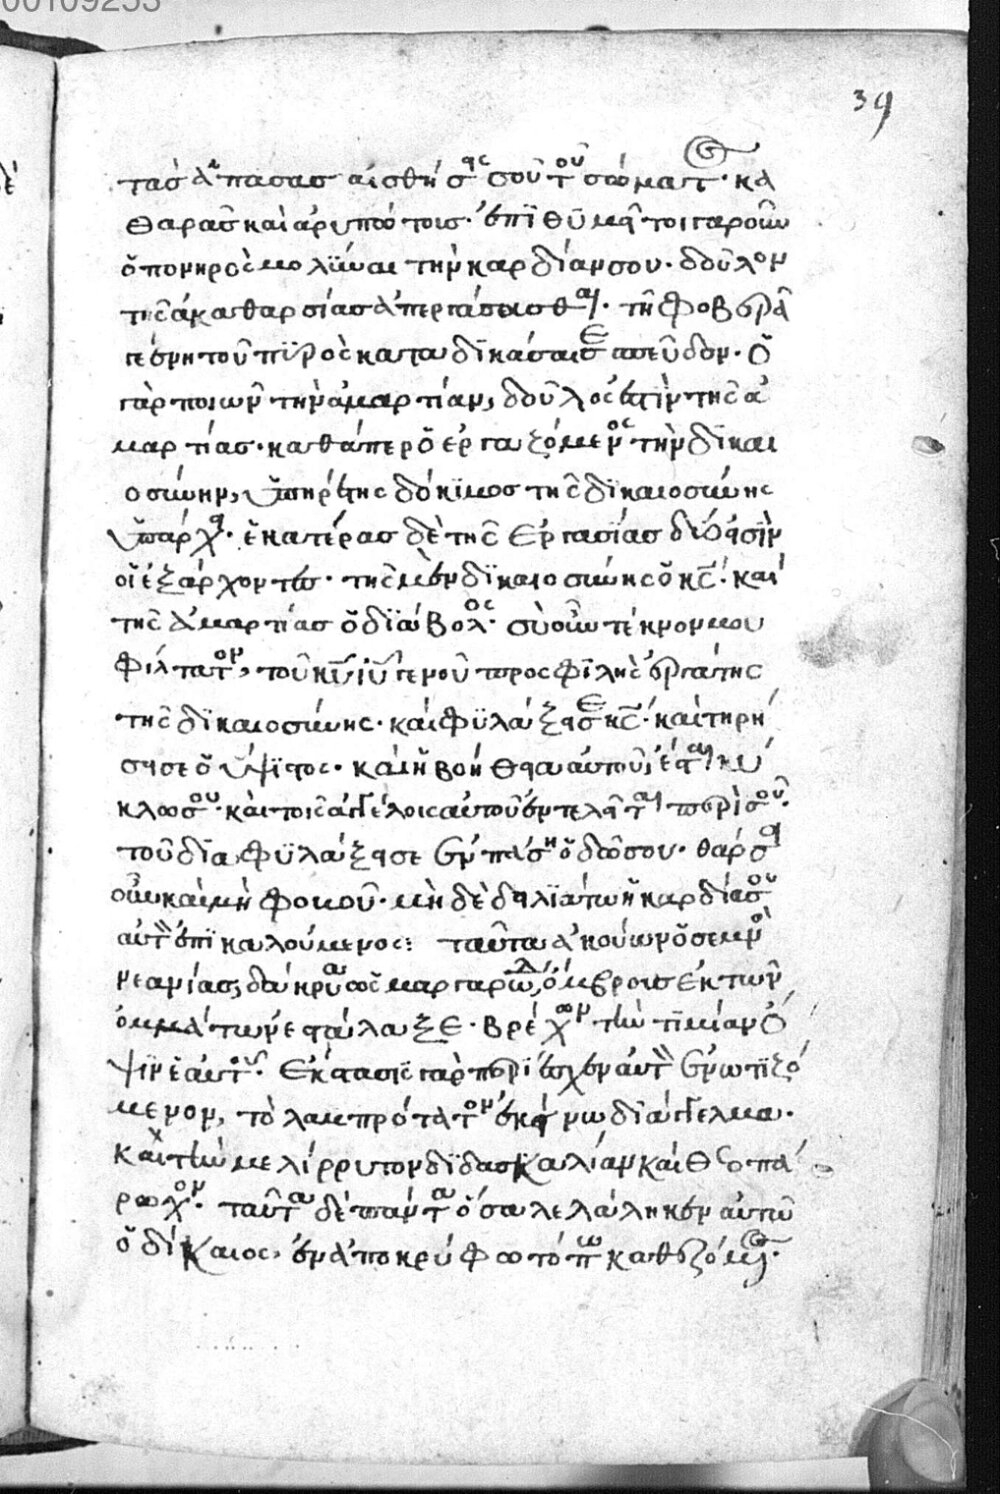 00109253
39
τὰσ ἁπάσασ αἰσθήσεις σοῦ τοῦ σώματος· κα
θαρὰς καὶ ἀρυπώτοις· ἐπϊθϋμεῖ τοιγαροῦν
ὁ πονηρὸς μολϊῦναι τὴν καρδίαν σου· δοῦλον
τῆς ἀκαθαρσίας ἀπεργάσεισθαι· τῆ φοβερᾶ
γεένη τοῦ πϋρὸς καταδϊκάσαι σε σπεῦδον· ὁ
γὰρ ποιῶν τὴν ἁμαρτίαν, δοῦλος ἐστὶν τῆς ἁ
μαρτίας· καθάπερ ὁ ἐργαζόμενος τὴν δϊκαι
οσύνην, ὑπηρέτης δόκϊμοσ τῆς δϊκαιοσύνης
ὑπάρχει· ἑκατέρας δὲ τῆς ἐργασίας δύο εἰσὶν
οἱ ἐξάρχοντες· τῆς μὲν δϊκαιοσύνης ὁ κς̅· καὶ
τῆς ἁμαρτίας ὁ διάβολος· σὺ οὖν τέκνον μου
φίλτατον, τοῦ κυ̅ ἰυ̅ γενοῦ προσφϊλὴς ἐργάτης
τῆς δϊκαιοσύνης· καὶ φϋλάξει σε κς̅· καὶ τηρή
σει σε ὁ ὕψϊστος· καὶ ἡ βοήθεια αὐτοῦ, ἔσται κύ
κλωσου· καὶ τοῖς ἀγγέλοις αὐτοῦ ἐντελεῖται περὶ σοῦ·
τοῦ διαφϋλάξει σε ἐν πάση ὁδῶ σου· θάρσει
οὖν καὶ μὴ φοβοῦ· μὴ δὲ δειλϊάτω ἡ καρδία σου
αὐτὸν ἐπϊκαλούμενος: ταῦτα ἀκούων ὁ σεμνὸς
νεανίας, δάκρυα ὡς μαργαρῶν, ὄμβροις ἐκ τῶν
ὀμμάτων ἐστάλαξε· βρέχων τὴν τϊμίαν ὄ
ψϊν ἑαυτοῦ· ἔκστασϊς γὰρ περιέσχεν αὐτὸν ἐνωτϊζό
μενον, τὸ λαμπρότατον ἐκείνω διάγγελμα·
καὶ τὴν μελίρρυτον δϊδασκαλίαν καὶ θεοπά
ροχον· ταῦτα δὲ πάντα ὅσα λελάληκεν αὐτῶ
ὁ δίκαιος, ἐν ἀποκρύφω τόπω καθεζόμενος·